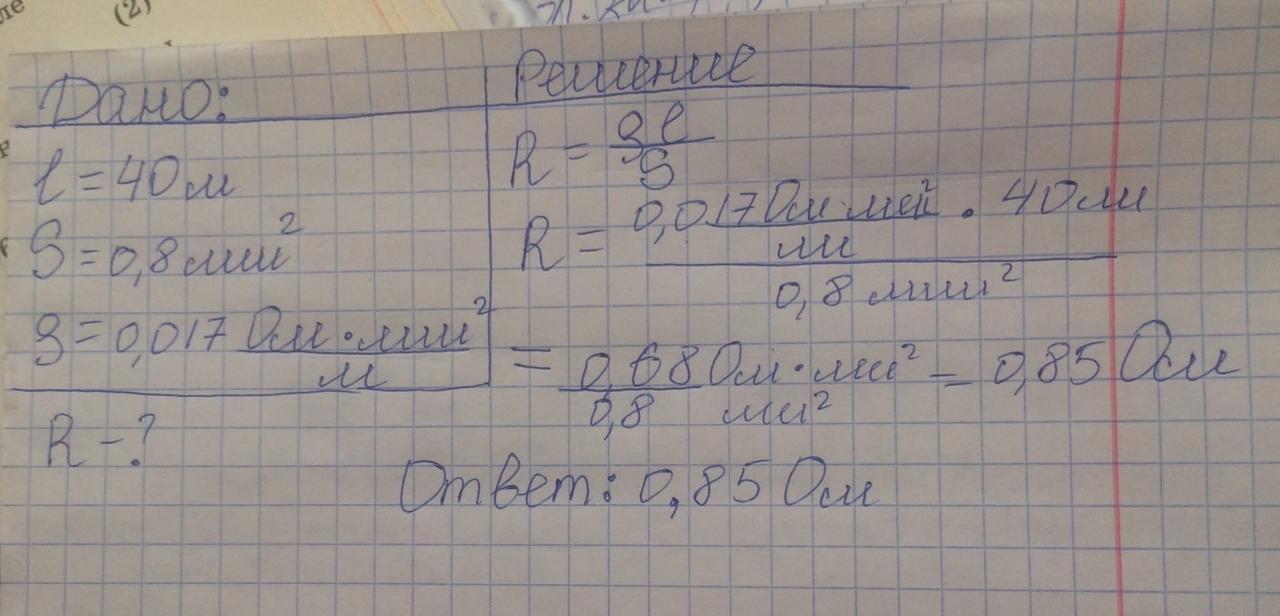 (2)
Дано:
l = 40 м
S = 0,8 мм²
ρ = 0,017 Ом·мм²/м
R - ?
Решение
R = ρl/S
R = 0,017 Ом·мм²/м · 40 м / 0,8 мм²
= 0,68 Ом·мм² / 0,8 мм² = 0,85 Ом
Ответ: 0,85 Ом